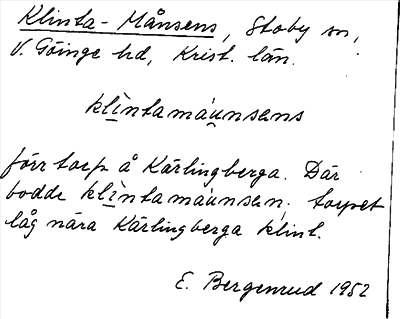 Klinta-Månsens, Stoby sn,
V. Göinge hd, Krist. län.
klìntamáunsens
förr torp å Kärlingberga. Där
bodde klìntamáunsen; torpet
låg nära Kärlingberga klint.
E. Bergenrud 1952